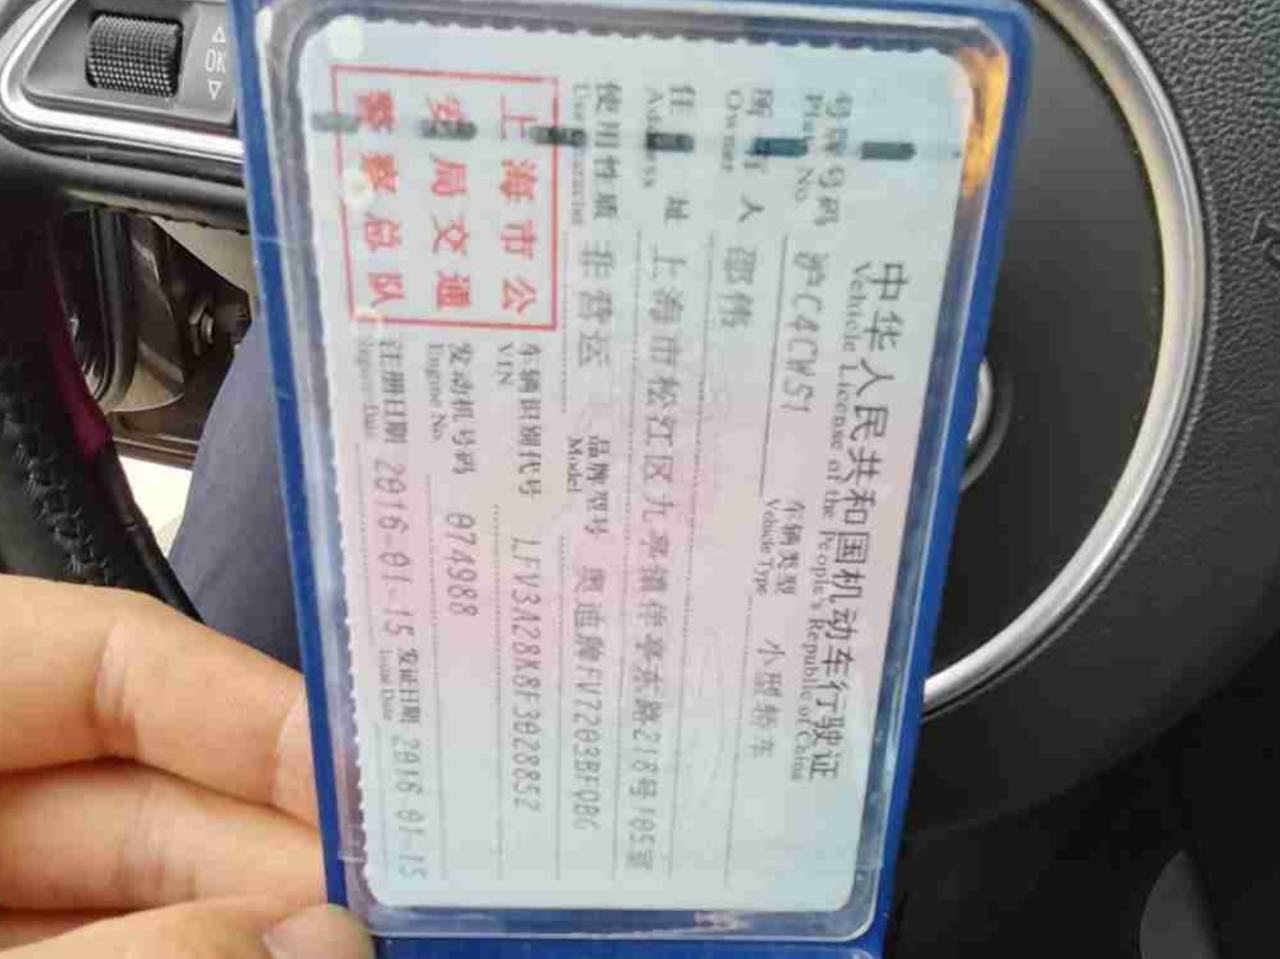 中华人民共和国机动车行驶证
Vehicle License of the People's Republic of China
号牌号码 沪C4CW51 车辆类型 小型轿车
Plate No. Vehicle Type
所有人 邵伟
Owner
住址 上海市松江区九亭镇伴亭东路218号105室
Address
使用性质 非营运 品牌型号 奥迪牌FV7203BFQBG
Use Character Model
上海市公
安局交通
警察总队
车辆识别代号 LFV3A28K8F3028852
VIN
发动机号码 074988
Engine No.
注册日期 2016-01-15 发证日期 2016-01-15
Register Date Issue Date
OK